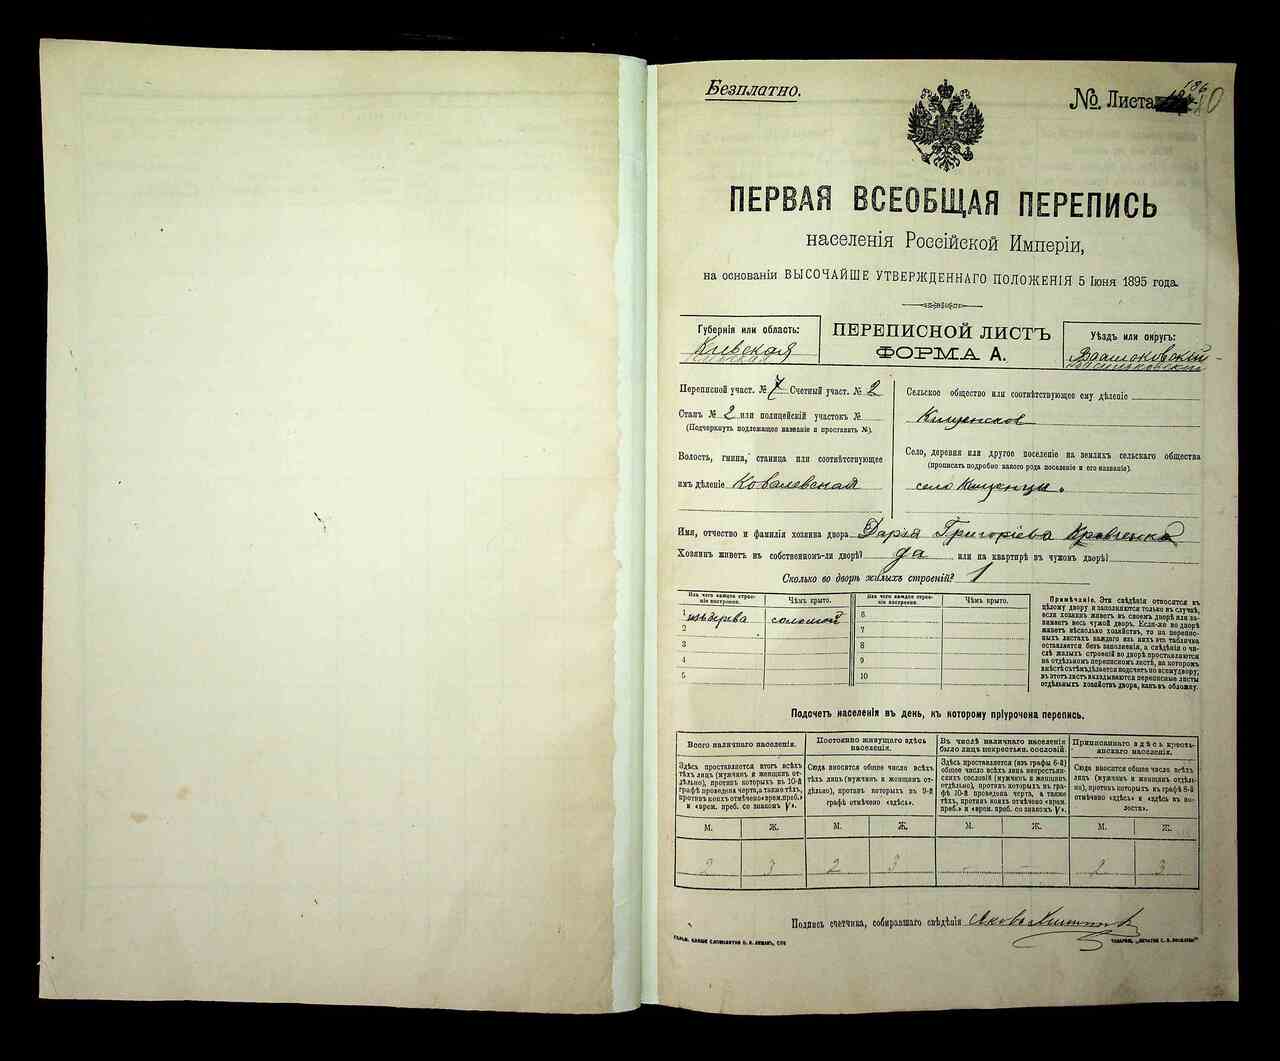 Безплатно.
№ Листа 186
ПЕРВАЯ ВСЕОБЩАЯ ПЕРЕПИСЬ
населенія Россійской Имперіи,
на основаніи ВЫСОЧАЙШЕ УТВЕРЖДЕННАГО ПОЛОЖЕНІЯ 5 Іюня 1895 года.
Губернія или область:
Кіевская
ПЕРЕПИСНОЙ ЛИСТЪ
ФОРМА А.
Уѣздъ или округъ:
Васильковскій
Переписной участ. № 7 Счетный участ. № 2
Станъ № 2 или полицейскій участокъ №
(Подчеркнуть подлежащее названіе и проставить №).
Волость, гмина, станица или соотвѣтствующее
имъ дѣленіе Ковалевская
Сельское общество или соотвѣтствующее ему дѣленіе
Село, деревня или другое поселеніе на земляхъ сельскаго общества
(прописать подробно какого рода поселеніе и его названіе).
село
Имя, отчество и фамилія хозяина двора Дарія Григоріева Кравченко
Хозяинъ живетъ въ собственномъ-ли дворѣ? да или на квартирѣ въ чужомъ дворѣ?
Сколько во дворѣ жилыхъ строеній? 1
Изъ чего каждое строеніе построено.
Чѣмъ крыто.
Изъ чего каждое строеніе построено.
Чѣмъ крыто.
1 изъ дерева соломой
2
3
4
5
6
7
8
9
10
Примѣчаніе. Эти свѣдѣнія относятся къ
цѣлому двору и заполняются только въ случаѣ,
если хозяинъ живетъ въ своемъ дворѣ или занимаетъ
весь чужой дворъ. Если-же во дворѣ
живетъ нѣсколько хозяйствъ, то на переписныхъ
листахъ каждаго изъ нихъ эта табличка
оставляется безъ заполненія, а свѣдѣнія о числѣ
жилыхъ строеній во дворѣ проставляются
на отдѣльномъ переписномъ листѣ, на которомъ
вмѣстѣ съ тѣмъ дѣлается подсчетъ по всему двору;
въ этотъ листъ вкладываются переписные листы
отдѣльныхъ хозяйствъ двора, какъ въ обложку.
Подсчетъ населенія въ день, къ которому пріурочена перепись.
Всего наличнаго населенія.
Здѣсь проставляется итогъ всѣхъ
тѣхъ лицъ (мужчинъ и женщинъ отдѣльно),
противъ которыхъ въ 10-й
графѣ проведена черта, а также тѣхъ,
противъ коихъ отмѣчено «врем. преб.»
и «врем. преб. со знакомъ V».
Постоянно живущаго здѣсь
населенія.
Сюда вносится общее число всѣхъ
тѣхъ лицъ (мужчинъ и женщинъ отдѣльно),
противъ которыхъ въ 9-й
графѣ отмѣчено «здѣсь».
Въ числѣ наличнаго населенія
было лицъ некрестьян. сословій.
Здѣсь проставляется (изъ графы 6-й)
общее число всѣхъ лицъ некрестьянскихъ
сословій (мужчинъ и женщинъ
отдѣльно), противъ которыхъ въ графѣ
10-й проведена черта, а также
тѣхъ, противъ коихъ отмѣчено «врем.
преб.» и «врем. преб. со знакомъ V».
Приписаннаго здѣсь крестьянскаго
населенія.
Сюда вносится общее число всѣхъ
лицъ (мужчинъ и женщинъ отдѣльно),
противъ которыхъ въ графѣ 8-й
отмѣчено «здѣсь» и «здѣсь въ волости».
М. Ж. М. Ж. М. Ж. М. Ж.
2 3 2 3 — — 2 3
Подпись счетчика, собиравшаго свѣдѣнія Яковъ